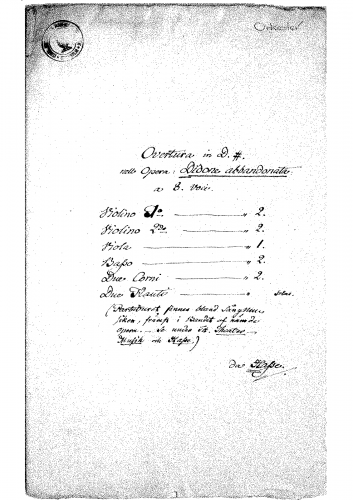 Orkester
Overtura in D. #.
nelle Opera: Didone abbandonata
a 8. voci.
Violino 1mo. ——— " 2.
Violino 2do. ——— " 2.
Viola ——— " 1.
Basso ——— " 2.
Due Corni ——— " 2.
Due Flauti ——— "
(Partituret finnes bland Sångmu-
siken, främst i bandet af
opera. — Se under Theater-
Musik och Hasse.)
da Hasse.